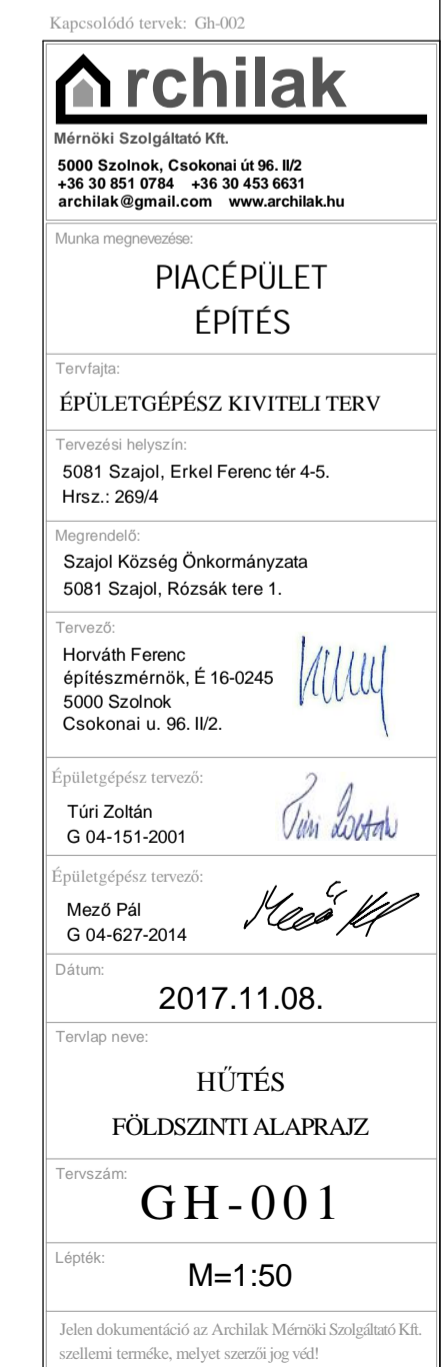 Kapcsolódó tervek: Gh-002
Archilak
Mérnöki Szolgáltató Kft.
5000 Szolnok, Csokonai út 96. II/2
+36 30 851 0784 +36 30 453 6631
archilak@gmail.com www.archilak.hu
Munka megnevezése:
PIACÉPÜLET
ÉPÍTÉS
Tervfajta:
ÉPÜLETGÉPÉSZ KIVITELI TERV
Tervezési helyszín:
5081 Szajol, Erkel Ferenc tér 4-5.
Hrsz.: 269/4
Megrendelő:
Szajol Község Önkormányzata
5081 Szajol, Rózsák tere 1.
Tervező:
Horváth Ferenc
építészmérnök, É 16-0245
5000 Szolnok
Csokonai u. 96. II/2.
Épületgépész tervező:
Túri Zoltán
G 04-151-2001
Túri Zoltán
Épületgépész tervező:
Mező Pál
G 04-627-2014
Mező Pál
Dátum:
2017.11.08.
Tervlap neve:
HŰTÉS
FÖLDSZINTI ALAPRAJZ
Tervszám:
GH-001
Lépték:
M=1:50
Jelen dokumentáció az Archilak Mérnöki Szolgáltató Kft.
szellemi terméke, melyet szerzői jog véd!